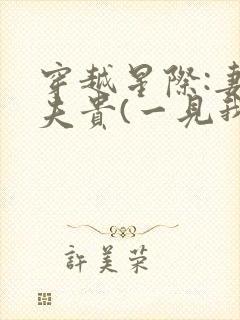 穿越星際:妻
夫貴(一見我
許美荣